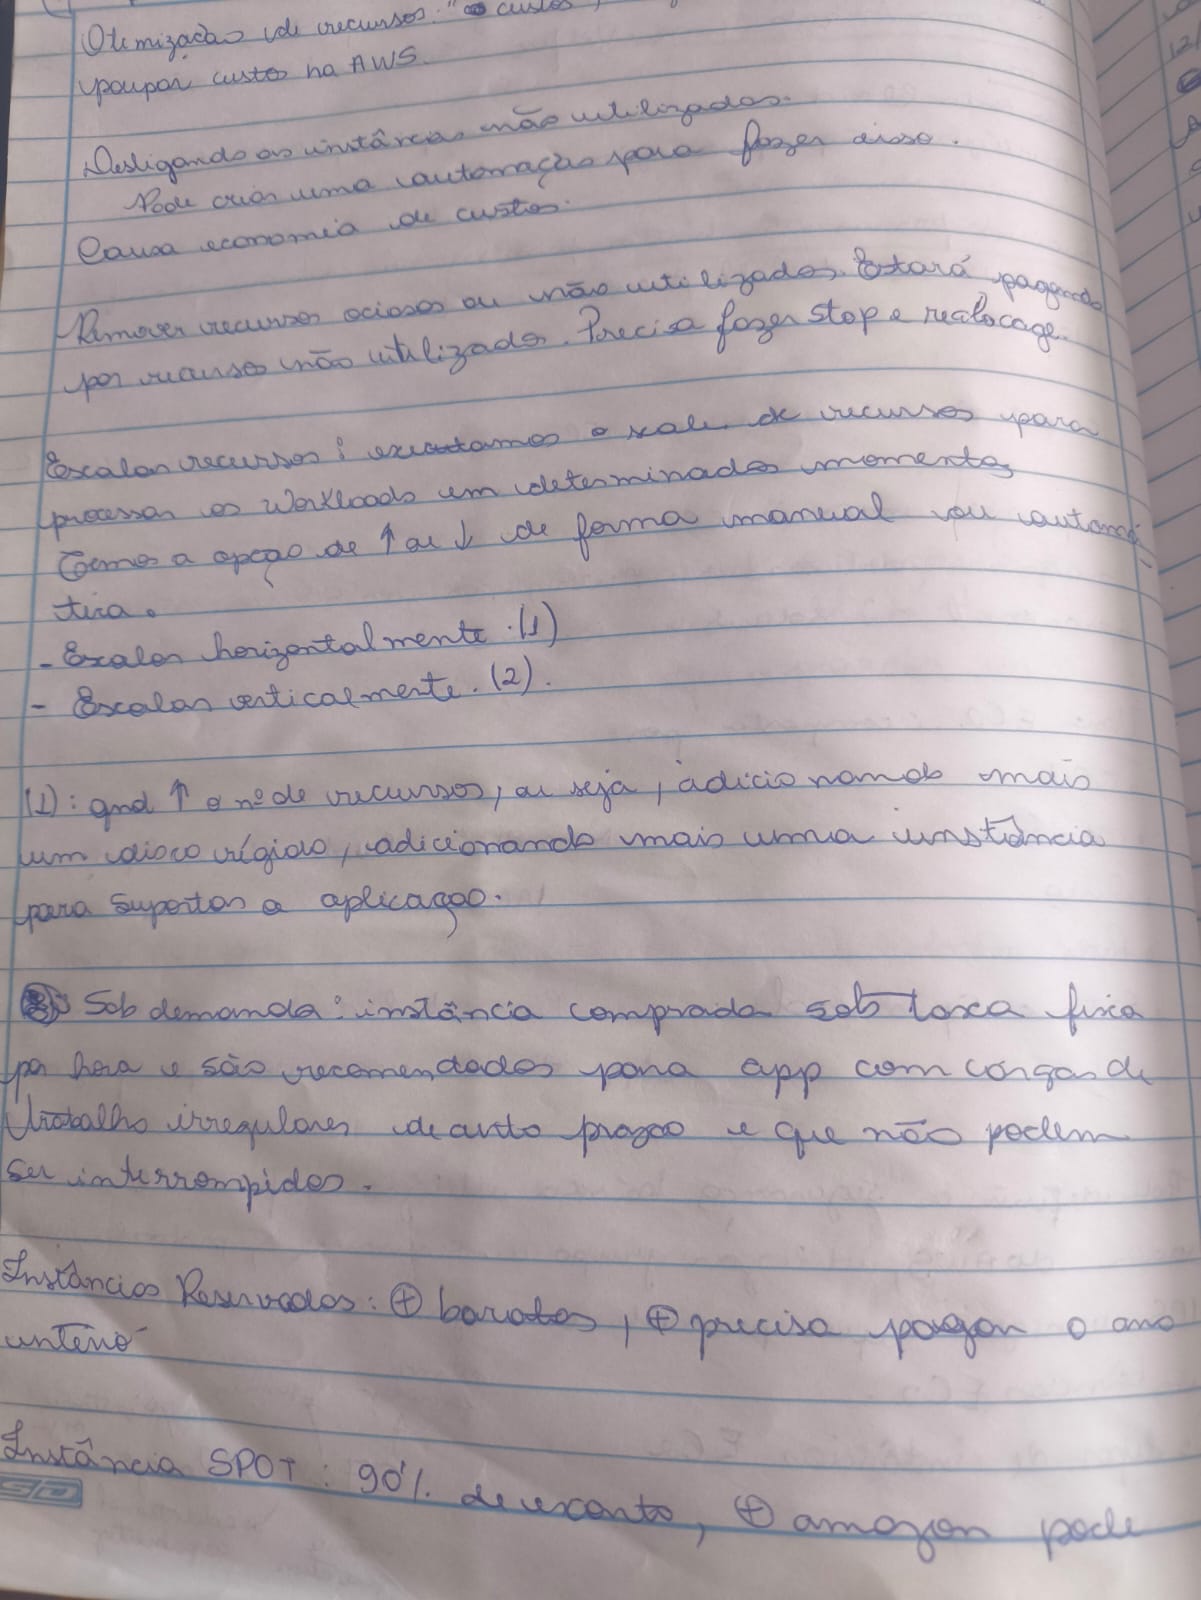 Otimização de recursos: custos,
poupar custos na AWS.
Desligando as instâncias não utilizadas.
Pode criar uma automação para fazer disso.
Causa economia de custos.
Remover recursos ociosos ou não utilizados. Estará pagando
por recursos não utilizados. Precisa fazer stop e realocage.
Escalar recursos: executamos o scale de recursos para
processar os Workloads em determinados momentos
Temos a opção de ↑ ou ↓ de forma manual ou automá-
tica.
- Escalar horizontalmente. (1)
- Escalar verticalmente. (2).
(1): qnd ↑ o nº de recursos, ou seja, adicionando mais
um disco rígido, adicionando mais uma instância
para suportar a aplicação.
Sob demanda: instância comprada sob taxa fixa
por hora e são recomendados para app com cargas de
trabalho irregulares de curto prazo e que não podem
ser interrompidos.
Instâncias Reservadas: + baratas, + precisa pagar o ano
inteiro
Instância SPOT: 90% desconto, + amazon pode
SD